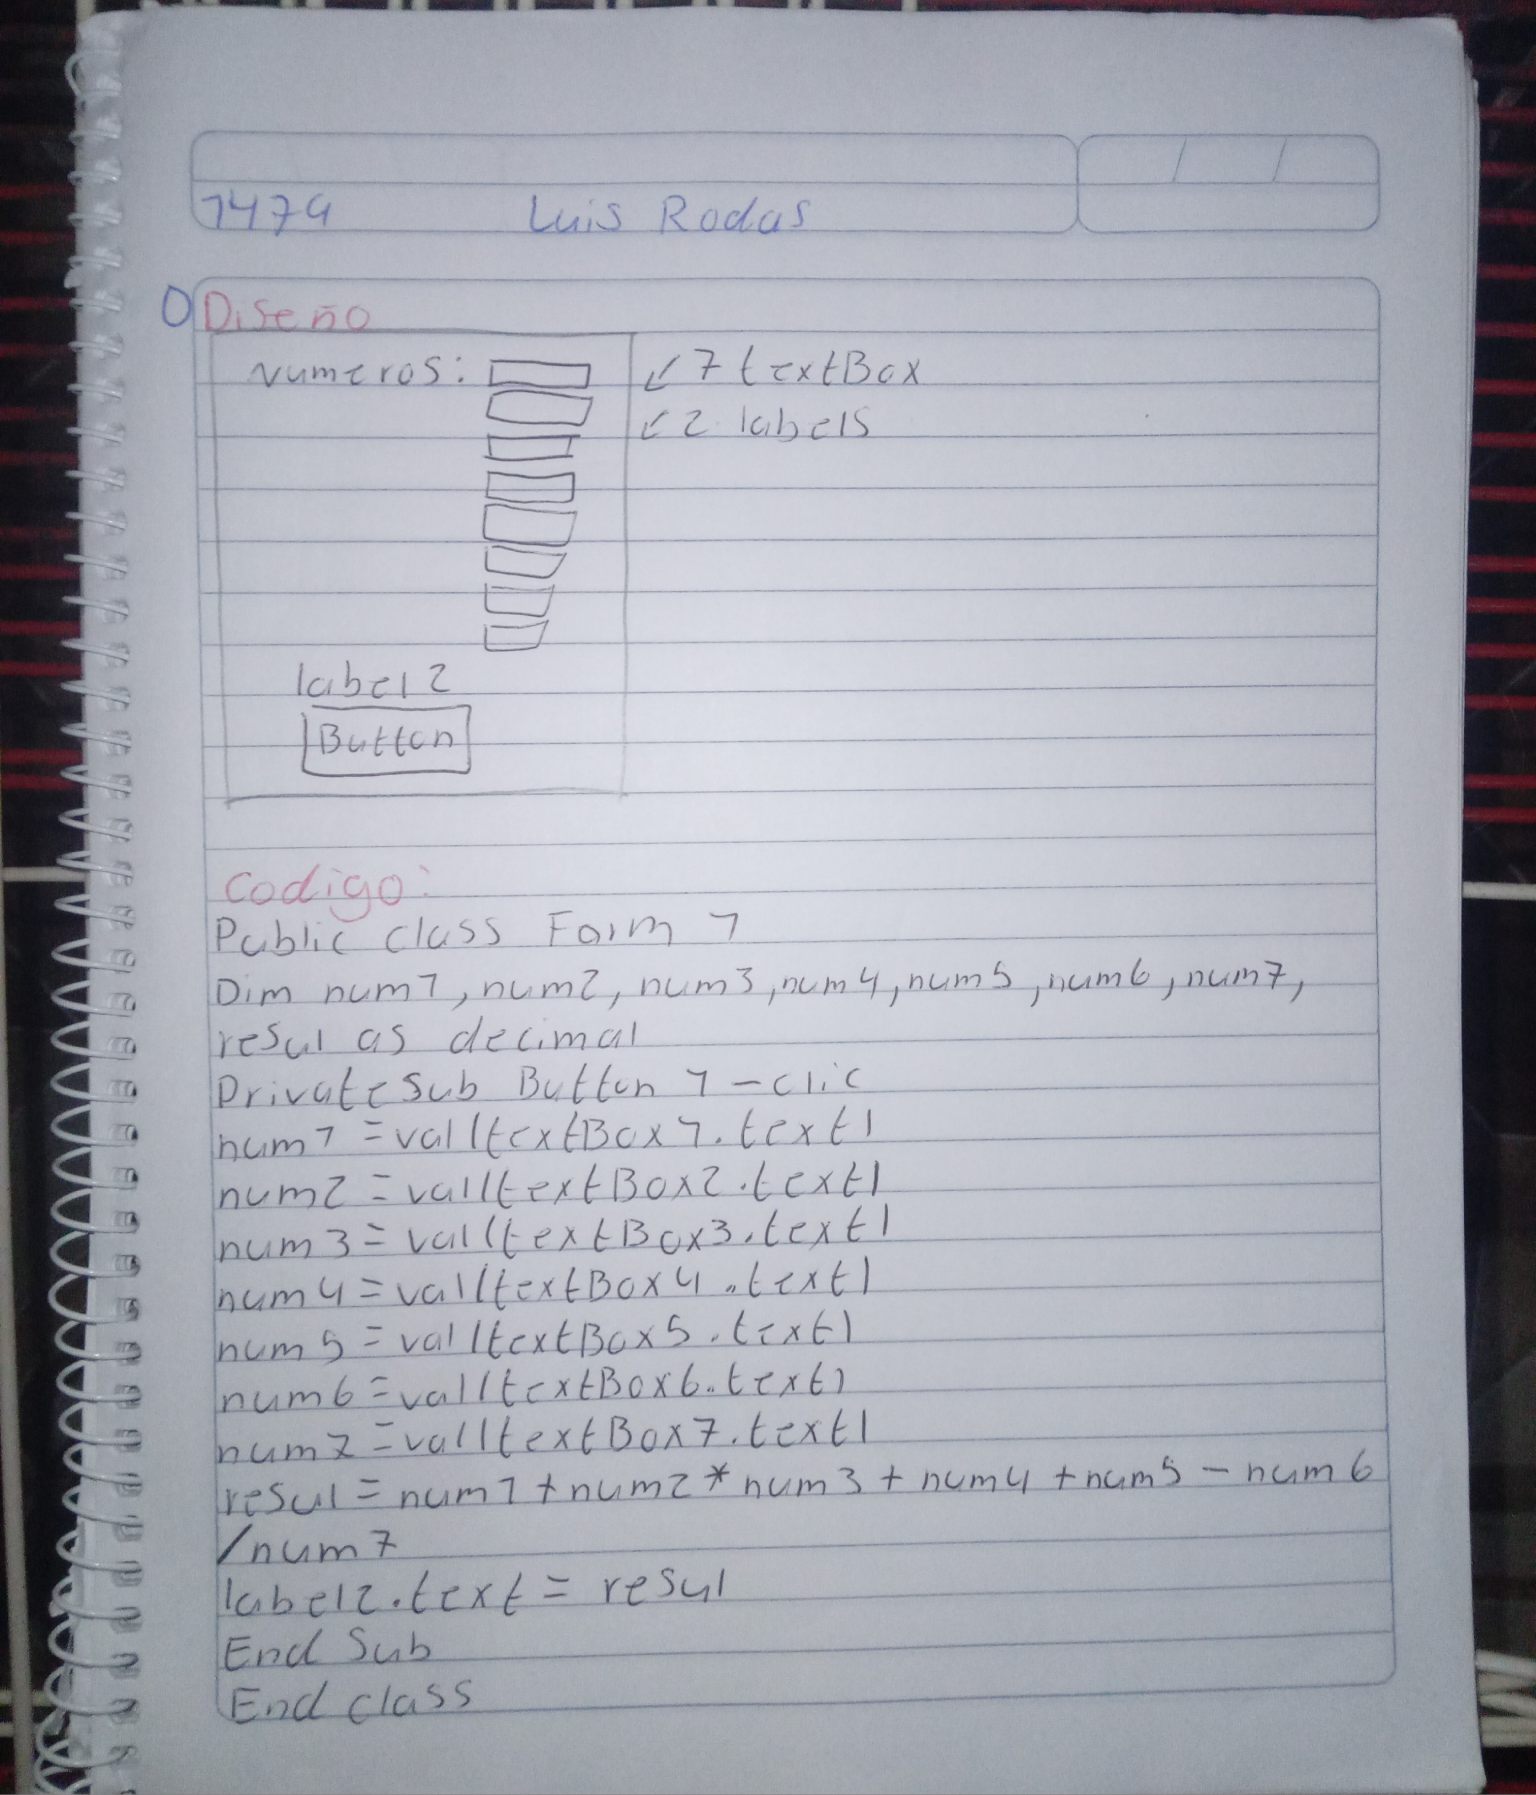 1479 Luis Rodas
O Diseño
numeros: ↙ 7 textBox
↙ 2 labels
label 2
Button
Codigo:
Public class Form 1
Dim num1, num2, num3, num4, num5, num6, num7,
resul as decimal
Private Sub Button 1 - clic
num1 = val(textBox1.text)
num2 = val(textBox2.text)
num3 = val(textBox3.text)
num4 = val(textBox4.text)
num5 = val(textBox5.text)
num6 = val(textBox6.text)
num7 = val(textBox7.text)
resul = num1 + num2 * num3 + num4 + num5 - num6
/num7
label2.text = resul
End Sub
End class